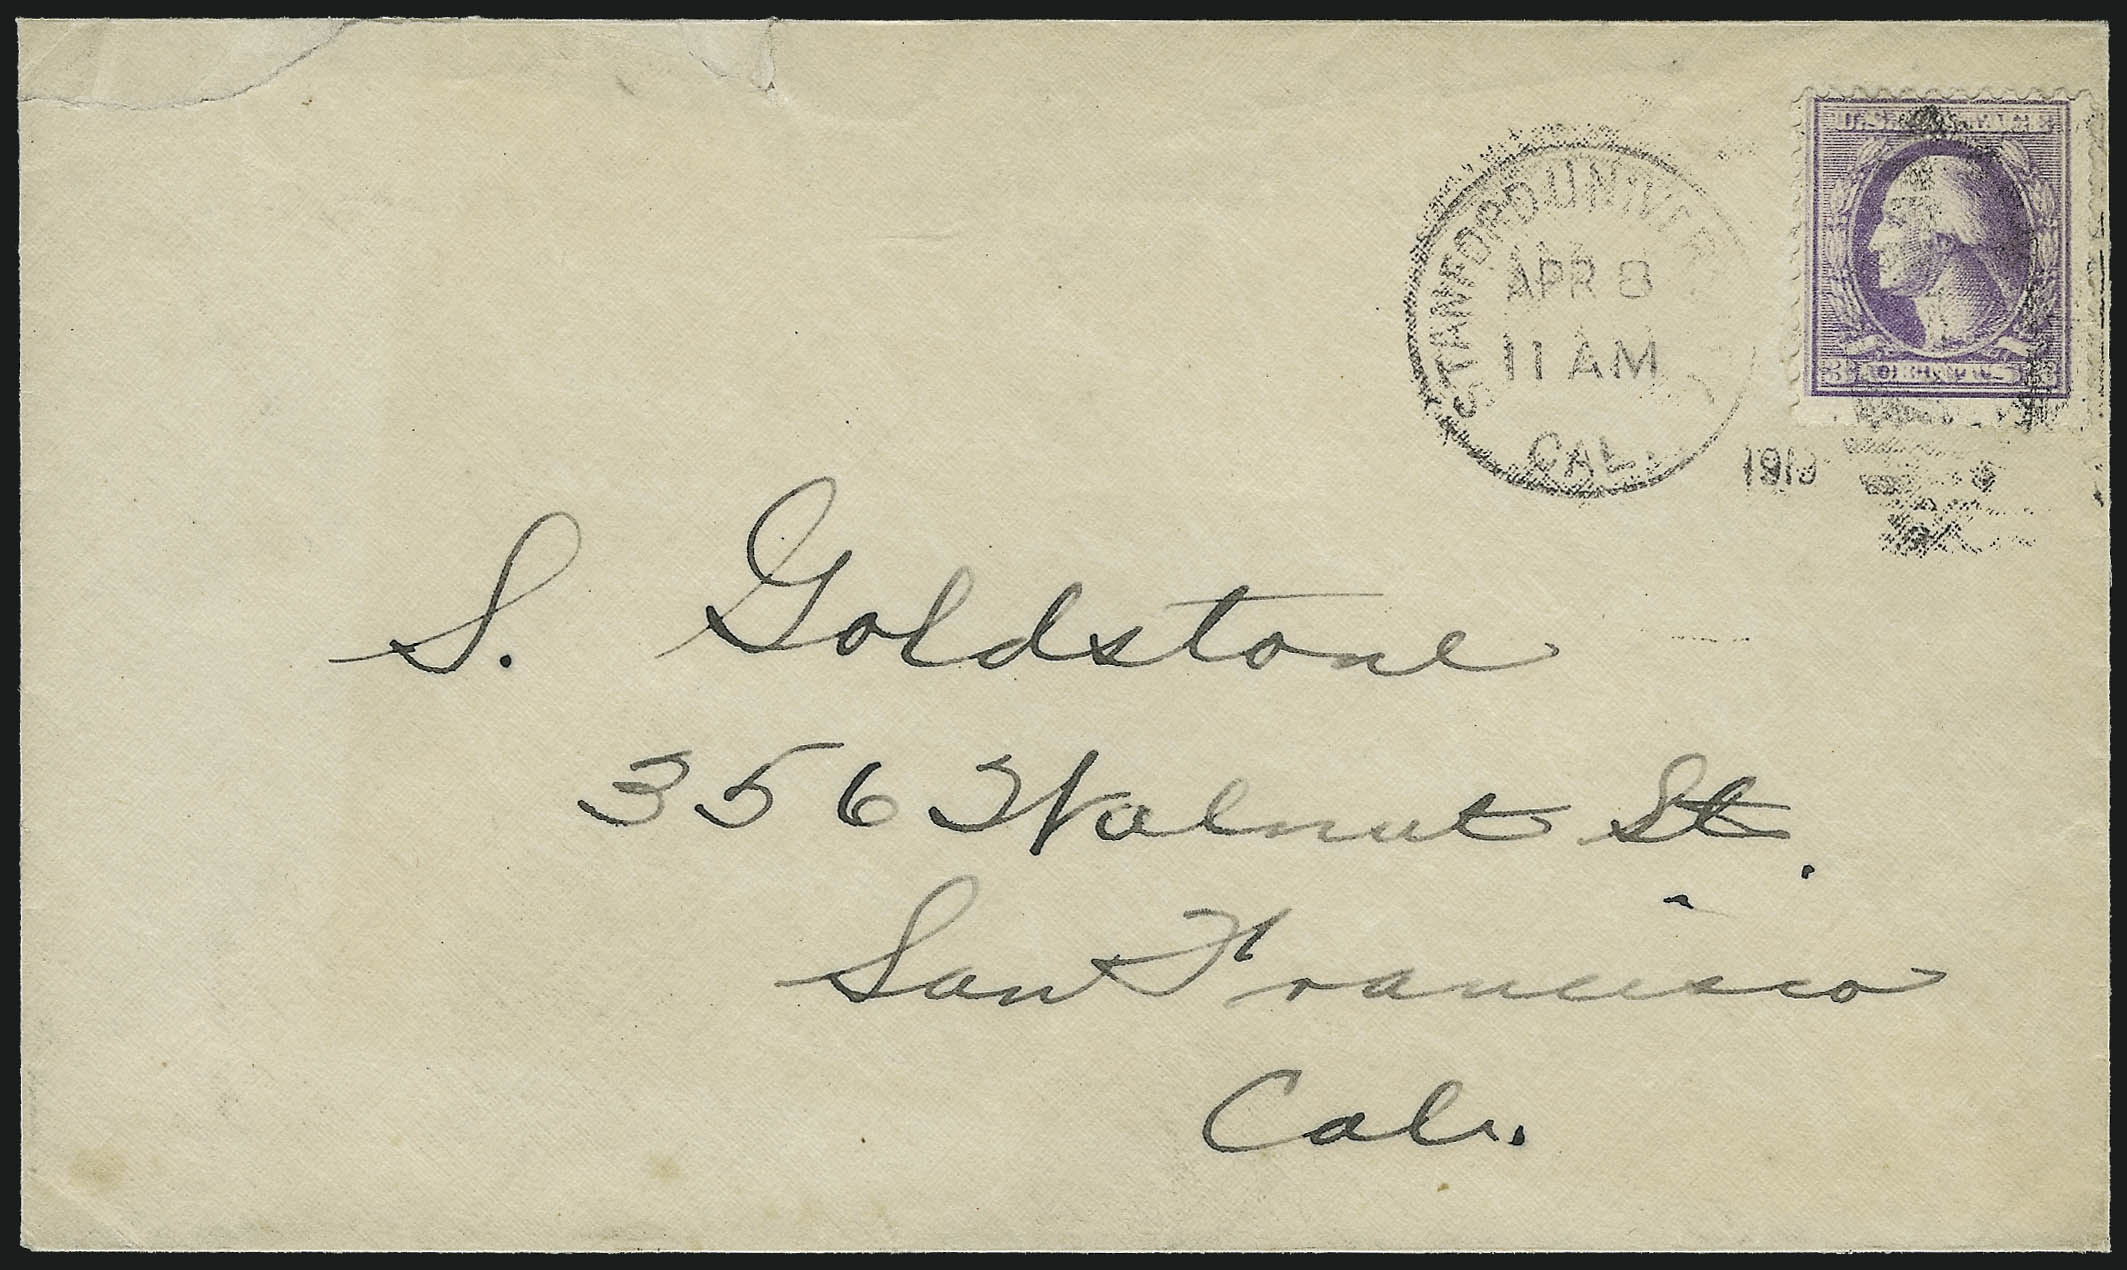 U.S. POSTAGE
STANFORD UNIVERSITY
APR 8
11 AM
CAL.
1919
3 CENTS 3
S. Goldstone
356 Walnut St.
San Francisco
Cal.